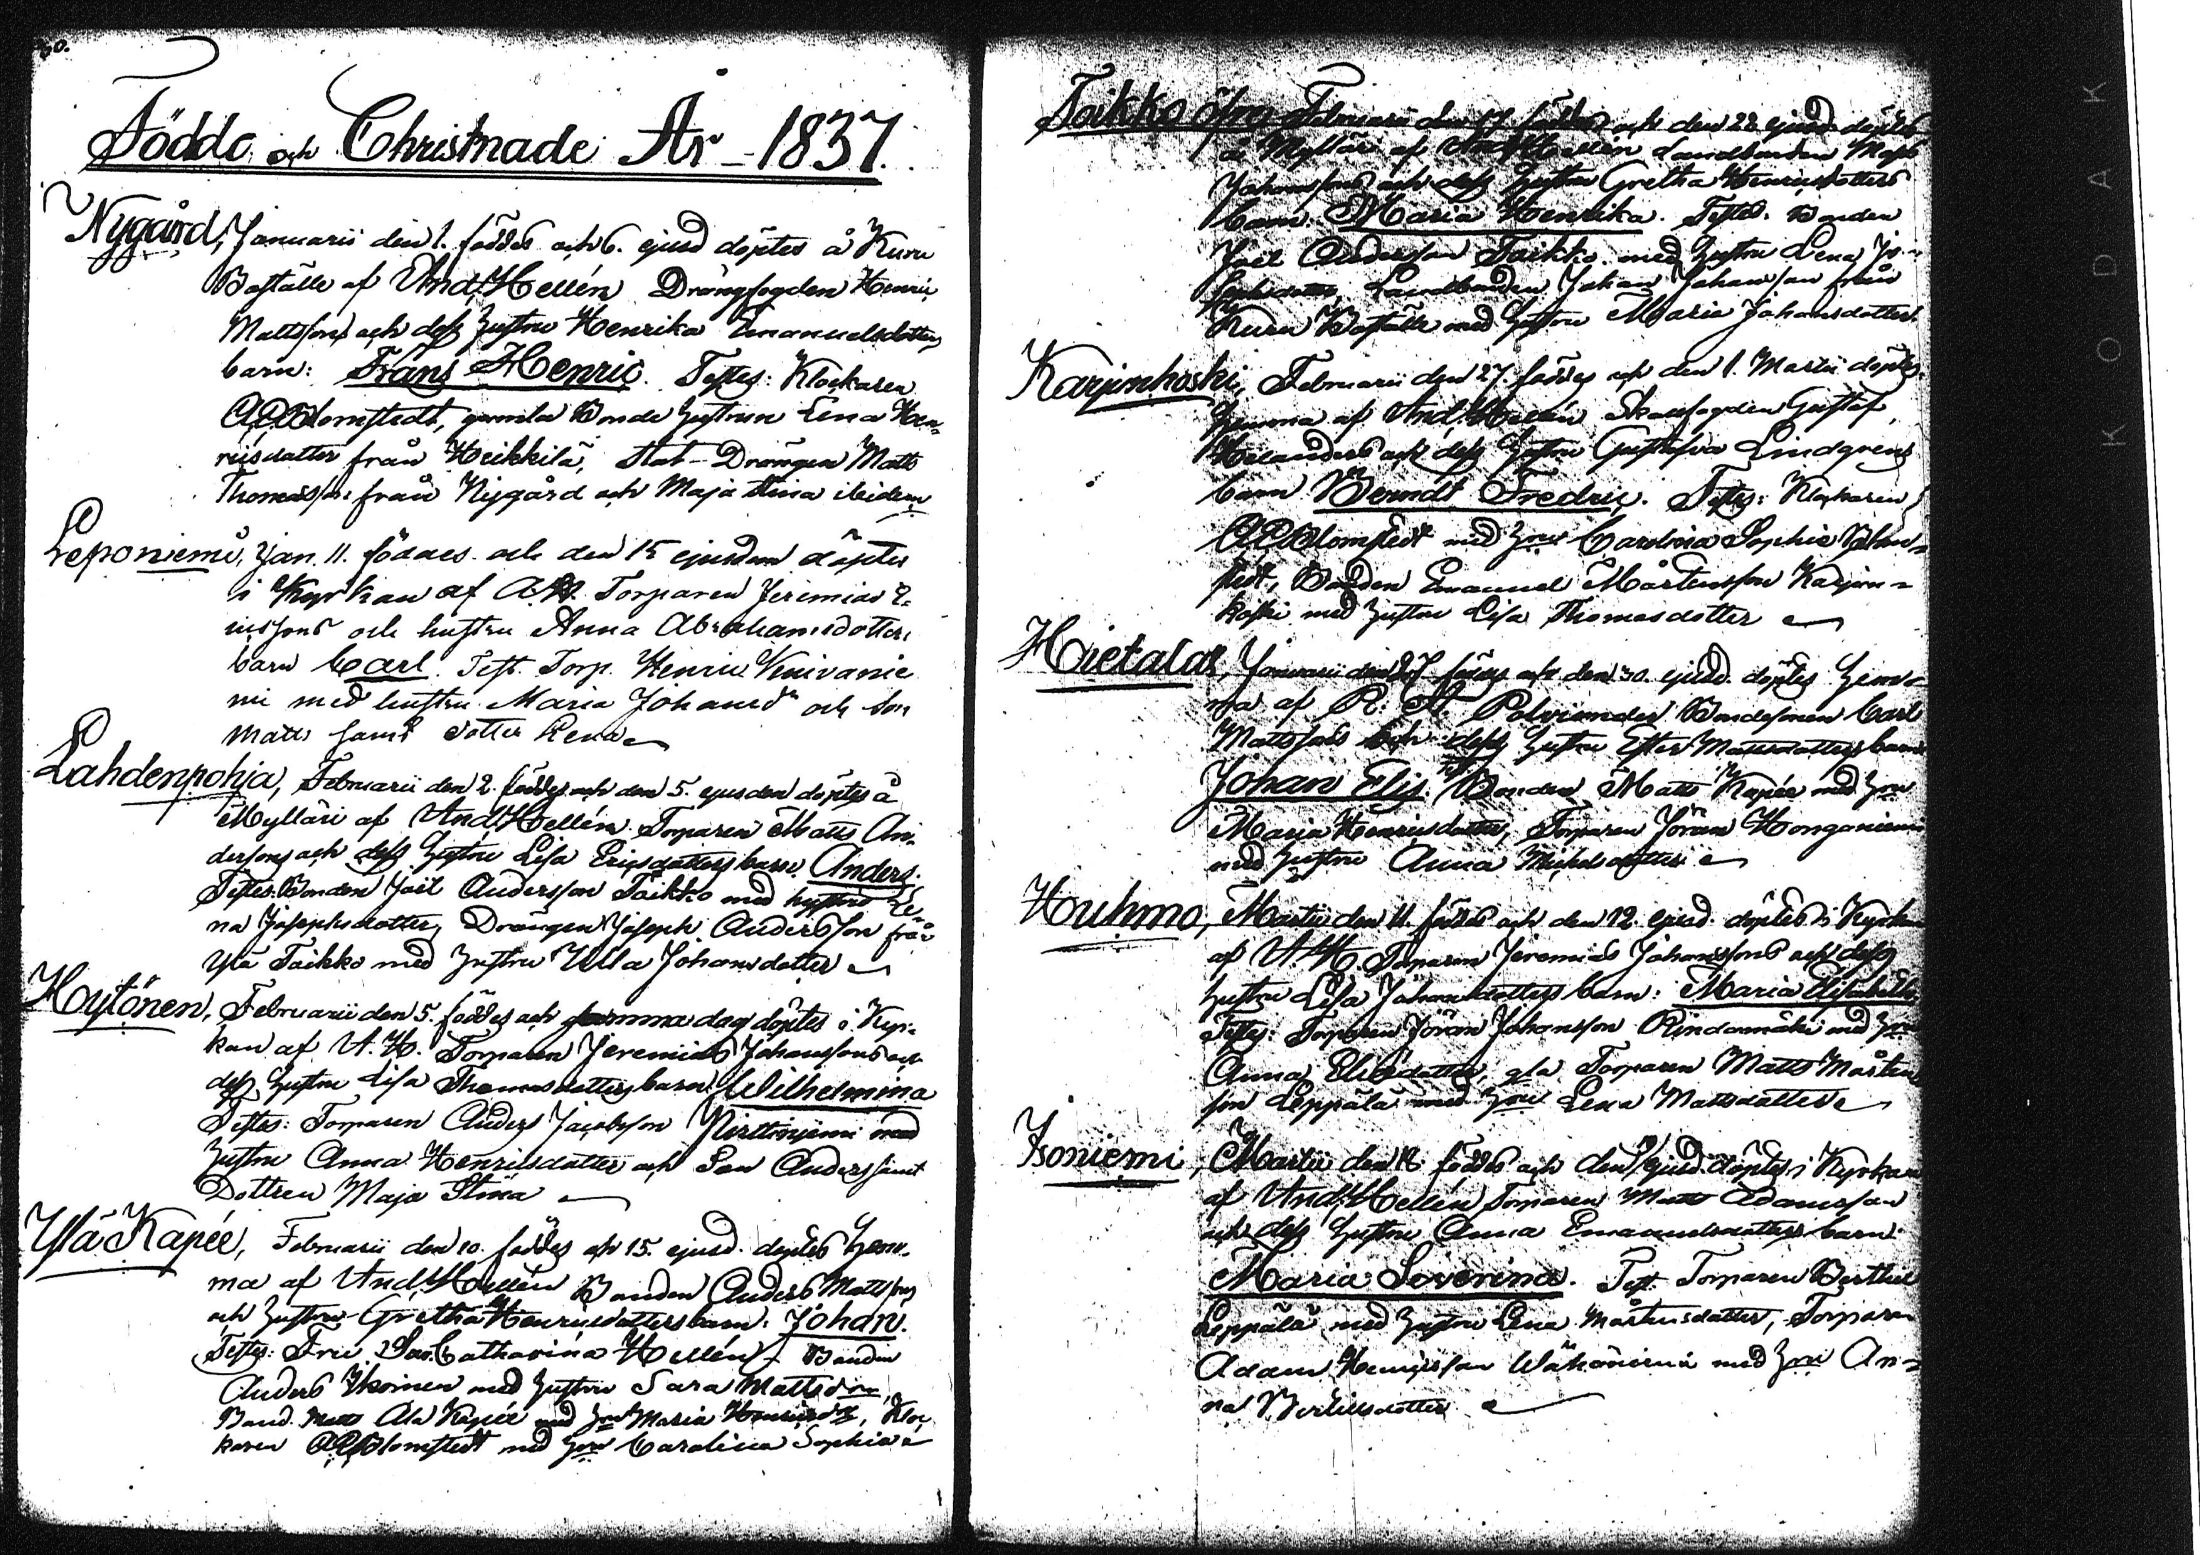 60.
Födde och Christnade År - 1837.
Nygård, Januarii den 1. föddes och 6. ejusd döptes å Kuru
Boställe af And. Hellén Drängfogden Henric
Mattssons och dess hustru Henrika Emanuelsdotters
barn: Frans Henric. Testes: Klockaren
Blomstedt, gamla Bonde hustrun Lena Hen-
ricsdotter från Heikkilä, Stat-Drängen Matts
Thomasson från Nygård och Maja Stina ibidem
Leponiemi, Jan. 11. föddes och den 15 ejusdem döptes
i Kyrkan af A.H. Torparen Jeremias E-
ricssons och hustru Anna Abrahamsdotters
barn Carl. Test. Torp. Henric Knivanie
mi med hustru Maria Johansdr och Son
Matts samt dotter Lena
Lahdenpohja, Februarii den 2. föddes och den 5. ejusdem döptes å
Mylläri af And. Hellén Torparen Matts An-
derssons och dess hustru Lisa Ericsdotters barn, Anders.
Testes: Bonden Joel Andersson Taikko med hustru Le-
na Josephsdotter, Drängen Joseph Andersson från
Ylä Taikko med hustru Ulla Johansdotter
Hytönen, Februarii den 5. föddes och samma dag döptes i Kyr-
kan af A.H. Torparen Jeremias Johanssons och
dess hustru Lisa Thomasdotters barn Wilhelmina
Testes: Torparen Anders Jacobsson Nirttiniemi med
hustru Anna Henricsdotter och Son Anders samt
Dottren Maja Stina
Ylä Kapée, Februarii den 10. föddes och 15. ejusd. döptes hem-
ma af And. Hellén Bonden Anders Mattssons
och hustru Gretha Henricsdotters barn: Johan.
Testes: Fru Catharina Hellén, Bonden
Anders med hustru Sara Mattsdr,
Bond. Matts Ala Kapée med hru Maria Henricsdr, Kloc
karen Blomstedt med hru Carolina Sophia
Taikko öfre Februarii den 17. föddes och den 22. ejusd döptes
å Mylläri af And. Hellén Landbonden
Johanssons och dess hustru Gretha Henricsdotters
barn: Maria Henrika. Testes. Bonden
Joel Andersson Taikko med hustru Lena Jo-
sephsdotter, Landbonden Johan Johansson från
Kuru Boställe med hustru Maria Johansdotter.
Karjunkoski, Februarii den 27. föddes och den 1. Martii döptes
hemma af And. Hellén Skansfogden Gustaf
Helanders och dess hustru Gustafva Lindgrens
barn Berndt Fredric. Testes: Klockaren
Blomstedt med hru Carolina Sophia Blom-
stedt, Bonden Emanuel Mårtensson Karjun-
koski med hustru Lisa Thomasdotter
Hietala, Januarii den 27 föddes och den 30. ejusd. döptes hem-
ma af Polviander Bondesonen Carl
Mattssons och dess hustru Ester Mattsdotters barn
Johan Elis. Tst Bonden Matts Kapée med hru
Maria Henricsdotter, Torparen Jöran Honganiemi
med hustru Anna Michelsdotter
Houhmo, Martii den 11. föddes och den 12. ejusd. döptes i Kyrkan
af A.H. Torparen Jeremias Johanssons och dess
hustru Lisa Johansdotters barn: Maria Elisabeth
Testes: Torparen Jöran Johansson Rindanmäki med hru
Anna Eliesdotter, gla Torparen Matts Mårten
son Leppälä med hru Lena Mattsdotter
Isoniemi, Martii den 18 föddes och den 19 ejusd döptes i Kyrkan
af And. Hellén Torparen Matts Adamsson
och dess hustru Anna Emanuelsdotters barn:
Maria Severina. Test. Torparen Berthel
Leppälä med hustru Lena Mårtensdotter, Torparen
Adam Henricsson Wähäniemi med hru An-
na Bertilsdotter
KODAK